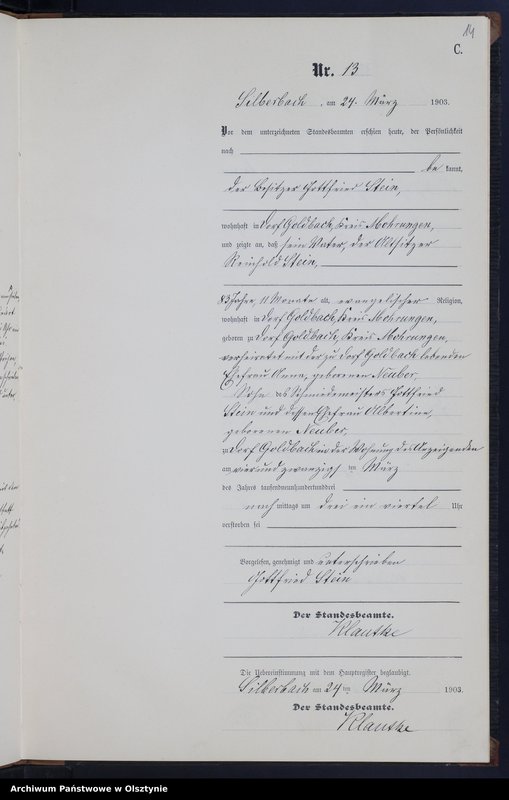 14
C.
Nr. 13
Silberbach, am 24. März 1903.
Vor dem unterzeichneten Standesbeamten erschien heute, der Persönlichkeit
nach
be kannt,
der Besitzer Gottfried Stein,
wohnhaft in Dorf Goldbach, Kreis Mohrungen,
und zeigte an, daß sein Vater, der Altsitzer
Reinhold Stein,
83 Jahre, 11 Monate alt, evangelischer Religion,
wohnhaft in Dorf Goldbach, Kreis Mohrungen,
geboren zu Dorf Goldbach, Kreis Mohrungen,
verheiratet mit der zu Dorf Goldbach lebenden
Ehefrau Anna, geborenen Neuber,
Sohn des Schmiedemeisters Gottfried
Stein und dessen Ehefrau Albertine,
geborenen Neuber,
zu Dorf Goldbach in der Wohnung des Anzeigenden
am vierundzwanzigsten März
des Jahres tausendneunhundertunddrei
nachmittags um drei ein viertel Uhr
verstorben sei
Vorgelesen, genehmigt und unterschrieben
Gottfried Stein
Der Standesbeamte.
Klautke
Die Uebereinstimmung mit dem Hauptregister beglaubigt.
Silberbach am 24ten März 1903.
Der Standesbeamte.
Klautke
Archiwum Państwowe w Olsztynie